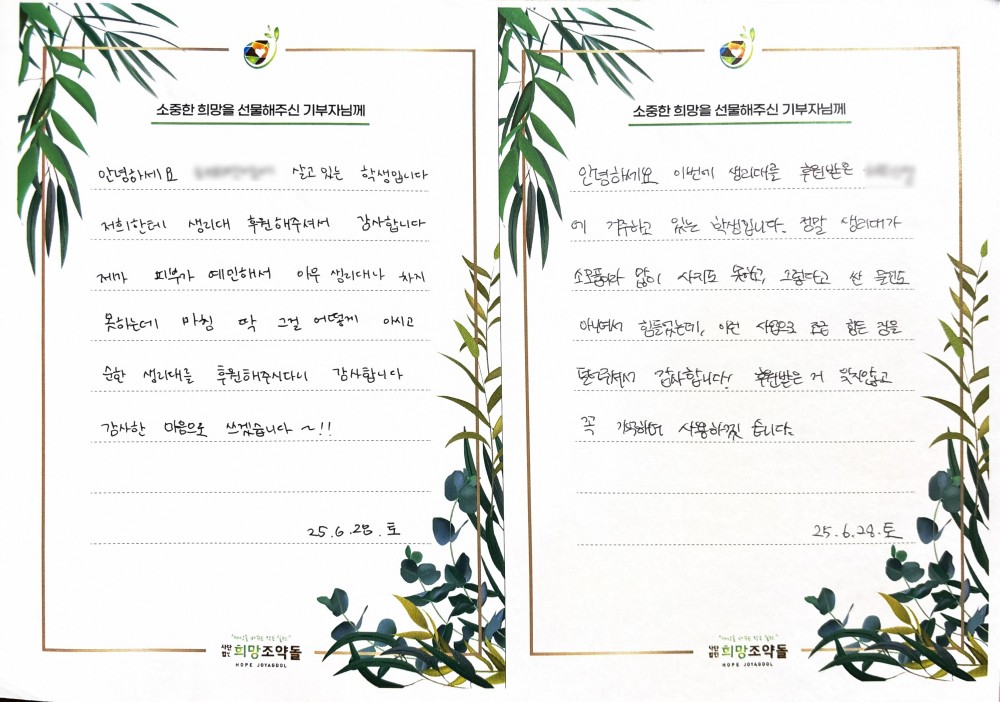 소중한 희망을 선물해주신 기부자님께
안녕하세요 살고있는 학생입니다
저희한테 생리대 후원해주셔서 감사합니다
제가 피부가 예민해서 아무 생리대나 차지
못하는데 마침 딱 그걸 어떻게 아시고
순한 생리대를 후원해주시다니 감사합니다
감사한 마음으로 쓰겠습니다 ~!!
25.6.28.토
사단법인 희망조약돌
HOPE JOYAGDOL
소중한 희망을 선물해주신 기부자님께
안녕하세요 이번에 생리대를 후원받은
에 거주하고 있는 학생입니다. 정말 생리대가
소모품이라 많이 사지도 못하고, 그렇다고 싼 물건도
아니여서 힘들었는데, 이런 사용으로 조금 힘든 점을
감사합니다! 후원받은 거 잊지않고
꼭 기억하며 사용하겠습니다.
25.6.28.토
사단법인 희망조약돌
HOPE JOYAGDOL